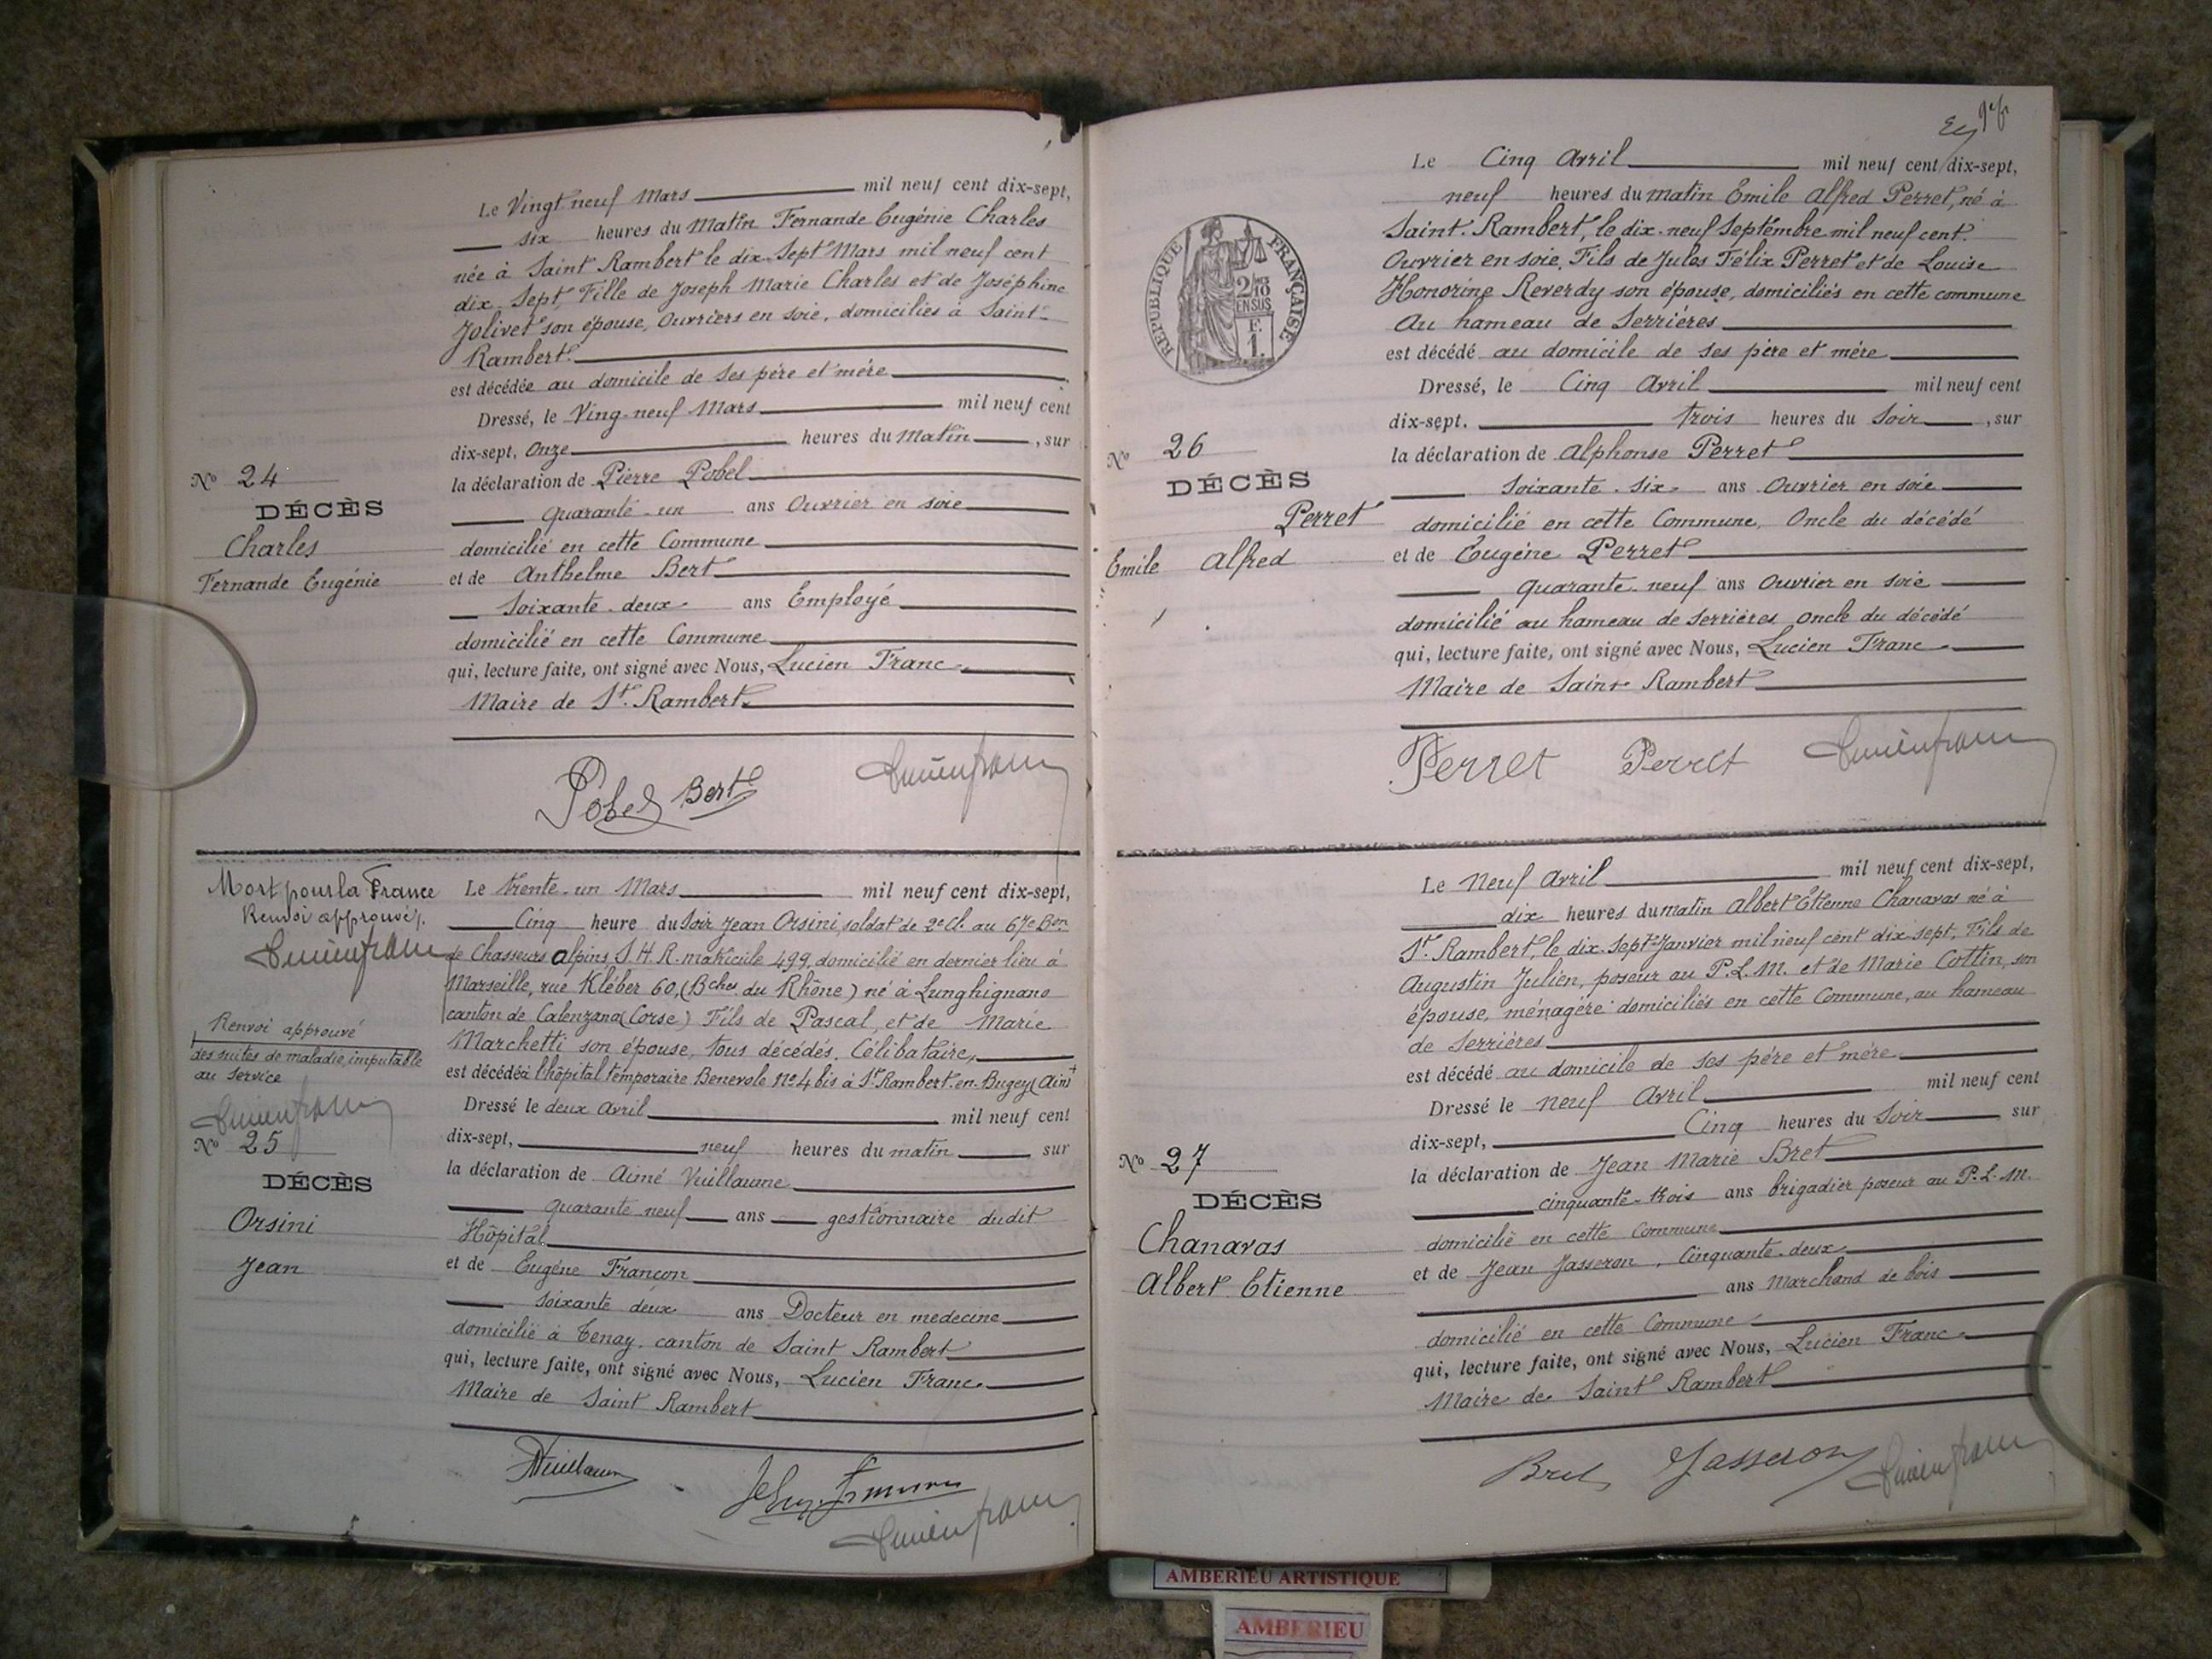 Le Vingt neuf Mars mil neuf cent dix-sept,
six heures du Matin Fernande Eugénie Charles
née à Saint Rambert le dix-Sept Mars mil neuf cent
dix Sept, Fille de Joseph Marie Charles et de Joséphine
Jolivet son épouse, Ouvriers en soie, domiciliés à Saint-
Rambert.
est décédée au domicile de ses père et mère
Dressé, le Ving-neuf Mars mil neuf cent
dix-sept, Onze heures du Matin, sur
la déclaration de Pierre Pobel
quarante-un ans Ouvrier en soie
domicilié en cette Commune
et de Anthelme Bert
Soixante-deux ans Employé
domicilié en cette Commune
qui, lecture faite, ont signé avec Nous, Lucien Franc
Maire de St. Rambert.
Pobel Bert Lucien franc
No 24
DÉCÈS
Charles
Fernande Eugénie
Mort pour la France
Renvoi approuvé.
Lucien franc
Renvoi approuvé
des suites de maladie imputable
au service
Lucien franc
No 25
DÉCÈS
Orsini
Jean
Le trente-un Mars mil neuf cent dix-sept,
Cinq heure du Soir Jean Orsini, soldat de 2e Cl. au 67e Bon
de Chasseurs alpins, S.H.R. matricule 499, domicilié en dernier lieu à
Marseille, rue Kléber 60, (Bches du Rhône) né à Lunghignano
canton de Calenzana (Corse) Fils de Pascal, et de Marie
Marchetti son épouse, tous décédés. Célibataire,
est décédé à l'hôpital temporaire Benevole No 4 bis à St. Rambert-en-Bugey (Ain)
Dressé le deux Avril mil neuf cent
dix-sept, neuf heures du matin sur
la déclaration de Aimé Vuillaume
quarante neuf ans gestionnaire dudit
Hôpital
et de Eugène Françon
soixante deux ans Docteur en medecine
domicilié à Tenay, canton de Saint Rambert
qui, lecture faite, ont signé avec Nous, Lucien Franc
Maire de Saint Rambert
Lucien franc
RÉPUBLIQUE FRANÇAISE
2/10
EN SUS
F.
1.
Le Cinq Avril mil neuf cent dix-sept,
neuf heures du matin Emile Alfred Perret, né à
Saint-Rambert, le dix-neuf Septembre mil neuf cent.
Ouvrier en soie, Fils de Jules Félix Perret et de Louise
Honorine Reverdy son épouse, domiciliés en cette commune
Au hameau de Serrières
est décédé au domicile de ses père et mère
Dressé, le Cinq Avril mil neuf cent
dix-sept, trois heures du Soir, sur
la déclaration de Alphonse Perret
Soixante-six ans Ouvrier en soie
domicilié en cette Commune, Oncle du décédé
et de Eugène Perret
quarante-neuf ans Ouvrier en soie
domicilié au hameau de Serrières, oncle du décédé
qui, lecture faite, ont signé avec Nous, Lucien Franc
Maire de Saint Rambert
Perret Perret Lucien franc
No 26
DÉCÈS
Perret
Emile Alfred
Le Neuf Avril mil neuf cent dix-sept,
dix heures du matin Albert Etienne Chanavas né à
St. Rambert, le dix-Sept Janvier mil neuf cent dix-sept, Fils de
Augustin Julien, poseur au P.L.M. et de Marie Cottin, son
épouse, ménagère domiciliés en cette Commune, au hameau
de Serrières
est décédé au domicile de ses père et mère
Dressé le neuf Avril mil neuf cent
dix-sept, Cinq heures du Soir sur
la déclaration de Jean Marie Bret
cinquante-trois ans brigadier poseur au P.L.M.
domicilié en cette Commune
et de Jean Jasseron, Cinquante-deux
ans Marchand de bois
domicilié en cette Commune
qui, lecture faite, ont signé avec Nous, Lucien Franc
Maire de Saint Rambert
Bret Jasseron Lucien franc
No 27
DÉCÈS
Chanavas
Albert Etienne
AMBERIEU ARTISTIQUE
AMBERIEU